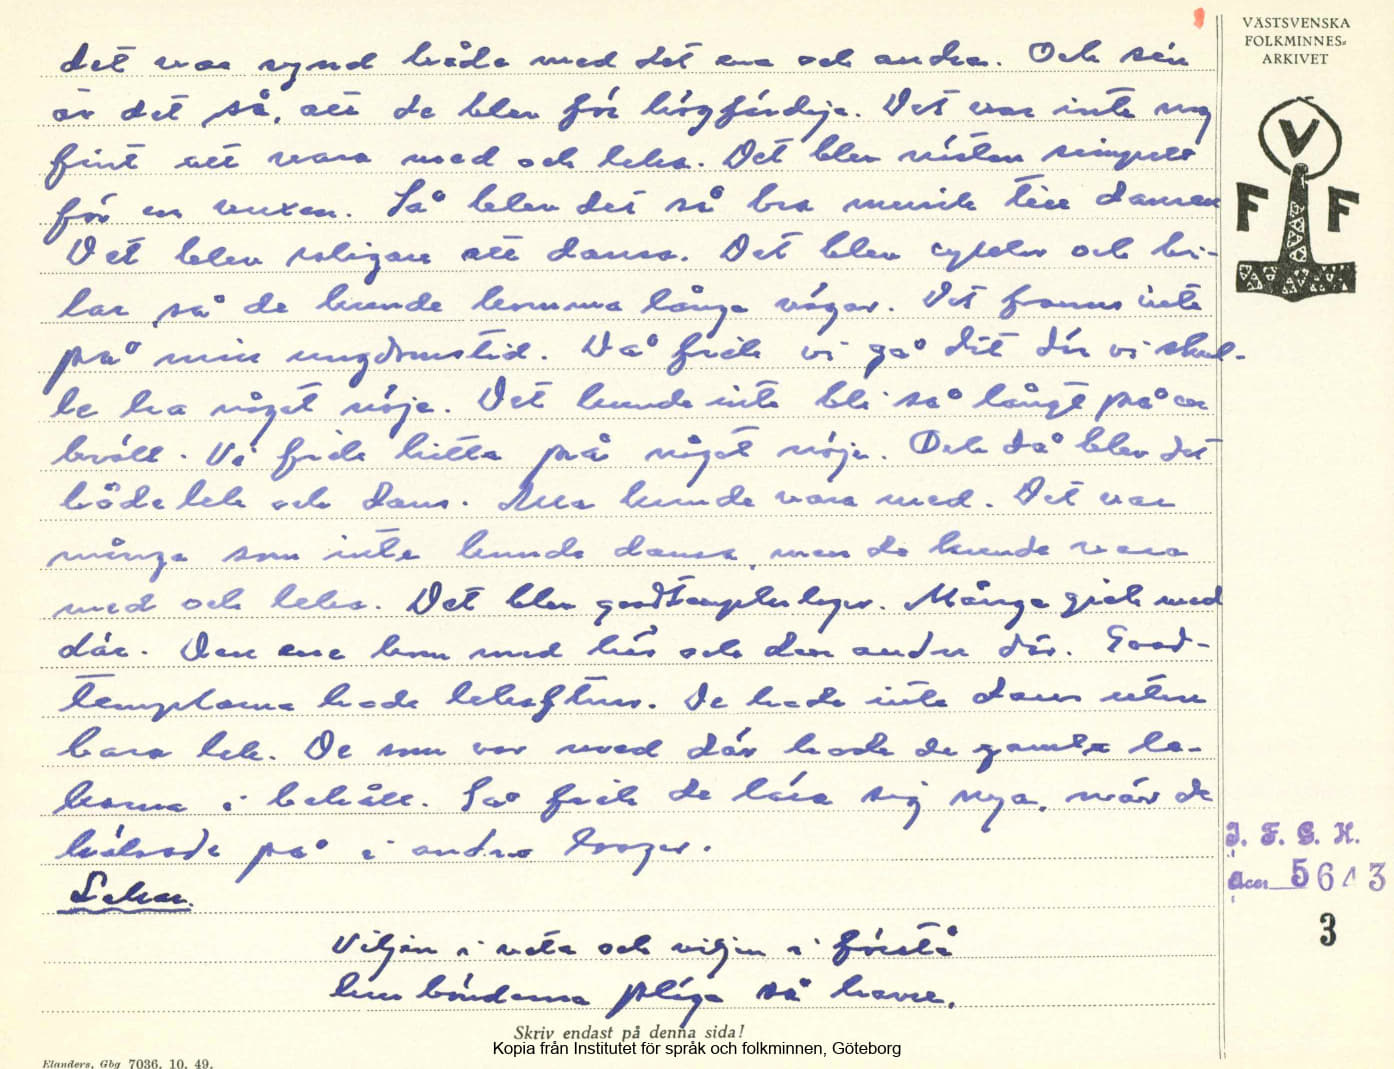 VÄSTSVENSKA
FOLKMINNES-
ARKIVET
V
F F
det var synd både med det ena och andra. Och sen
är det så, att de blev för högfärdija. Det var inte nog
fint att vara med och leka. Det blev nästan simpelt
för en vuxen. Så blev det så bra musik till dansen
Det blev roligare att dansa. Det blev cyklar och bi-
lar, så de kunde komma långa vägar. Det fanns inte
på min ungdomstid. Då fick vi gå dit där vi skul-
le ha något nöje. Det kunde inte bli så långt på en
kväll. Vi fick hitta på något nöje. Och då blev det
både lek och dans. Alla kunde vara med. Det var
många som inte kunde dansa, men de kunde vara
med och leka. Det blev goodtemplarloger. Många gick med
där. Den ena kom med här och den andra där. Good-
templarna hade lekaftnar. De hade inte dans utan
bara lek. De som var med där hade de gamla le-
karna i behåll. Så fick de lära sig nya, när de
hälsade på i andra loger.
Lekar.
Viljen i veta och viljen i förstå
hur bönderna pläga så havre.
Skriv endast på denna sida!
Kopia från Institutet för språk och folkminnen, Göteborg
Elanders, Gbg 7036. 10. 49.
I. F. G. H.
Acc. 5643
3